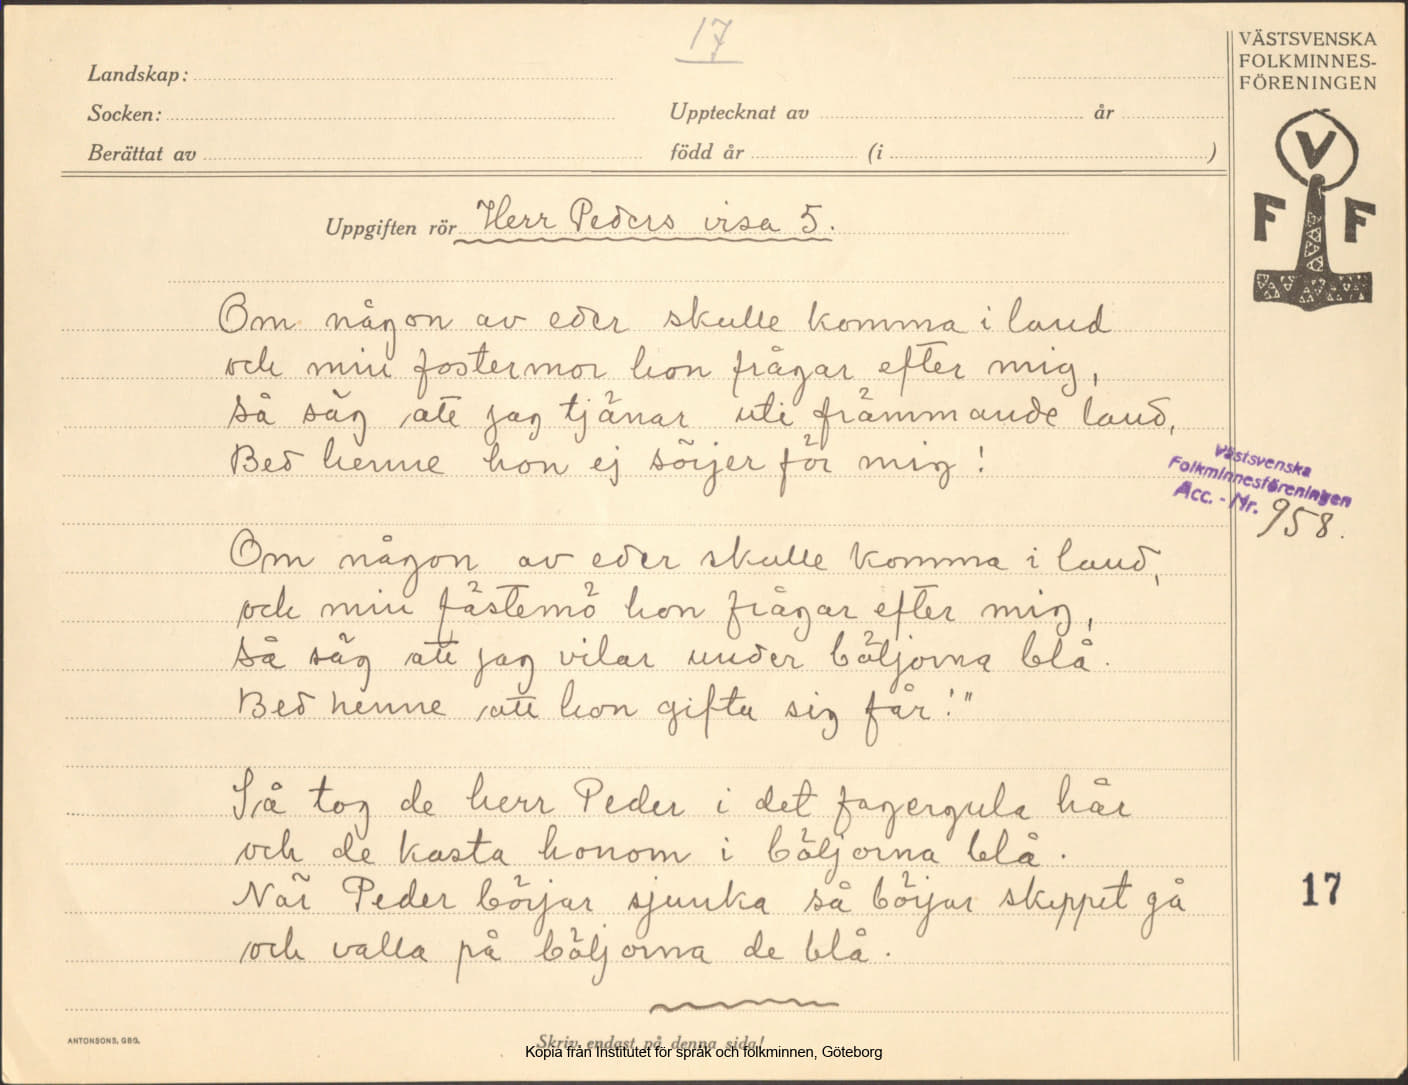 17
VÄSTSVENSKA
FOLKMINNES-
FÖRENINGEN
V
F F
Landskap:
Socken:
Upptecknat av år
Berättat av född år (i )
Uppgiften rör Herr Peders visa 5.
Om någon av eder skulle komma i land
och min fostermor hon frågar efter mig,
så säg att jag tjänar uti främmande land,
Bed henne hon ej sörjer för mig!
Västsvenska
Folkminnesföreningen
Acc. - Nr. 958.
Om någon av eder skulle komma i land,
och min fästemö hon frågar efter mig,
så säg att jag vilar under böljorna blå.
Bed henne att hon gifta sig får!"
Så tog de herr Peder i det fagergula hår
och de kasta honom i böljorna blå.
När Peder börjar sjunka så börjar skeppet gå
och valla på böljorna de blå.
17
ANTONSONS, GBG.
Skriv endast på denna sida!
Kopia från Institutet för språk och folkminnen, Göteborg